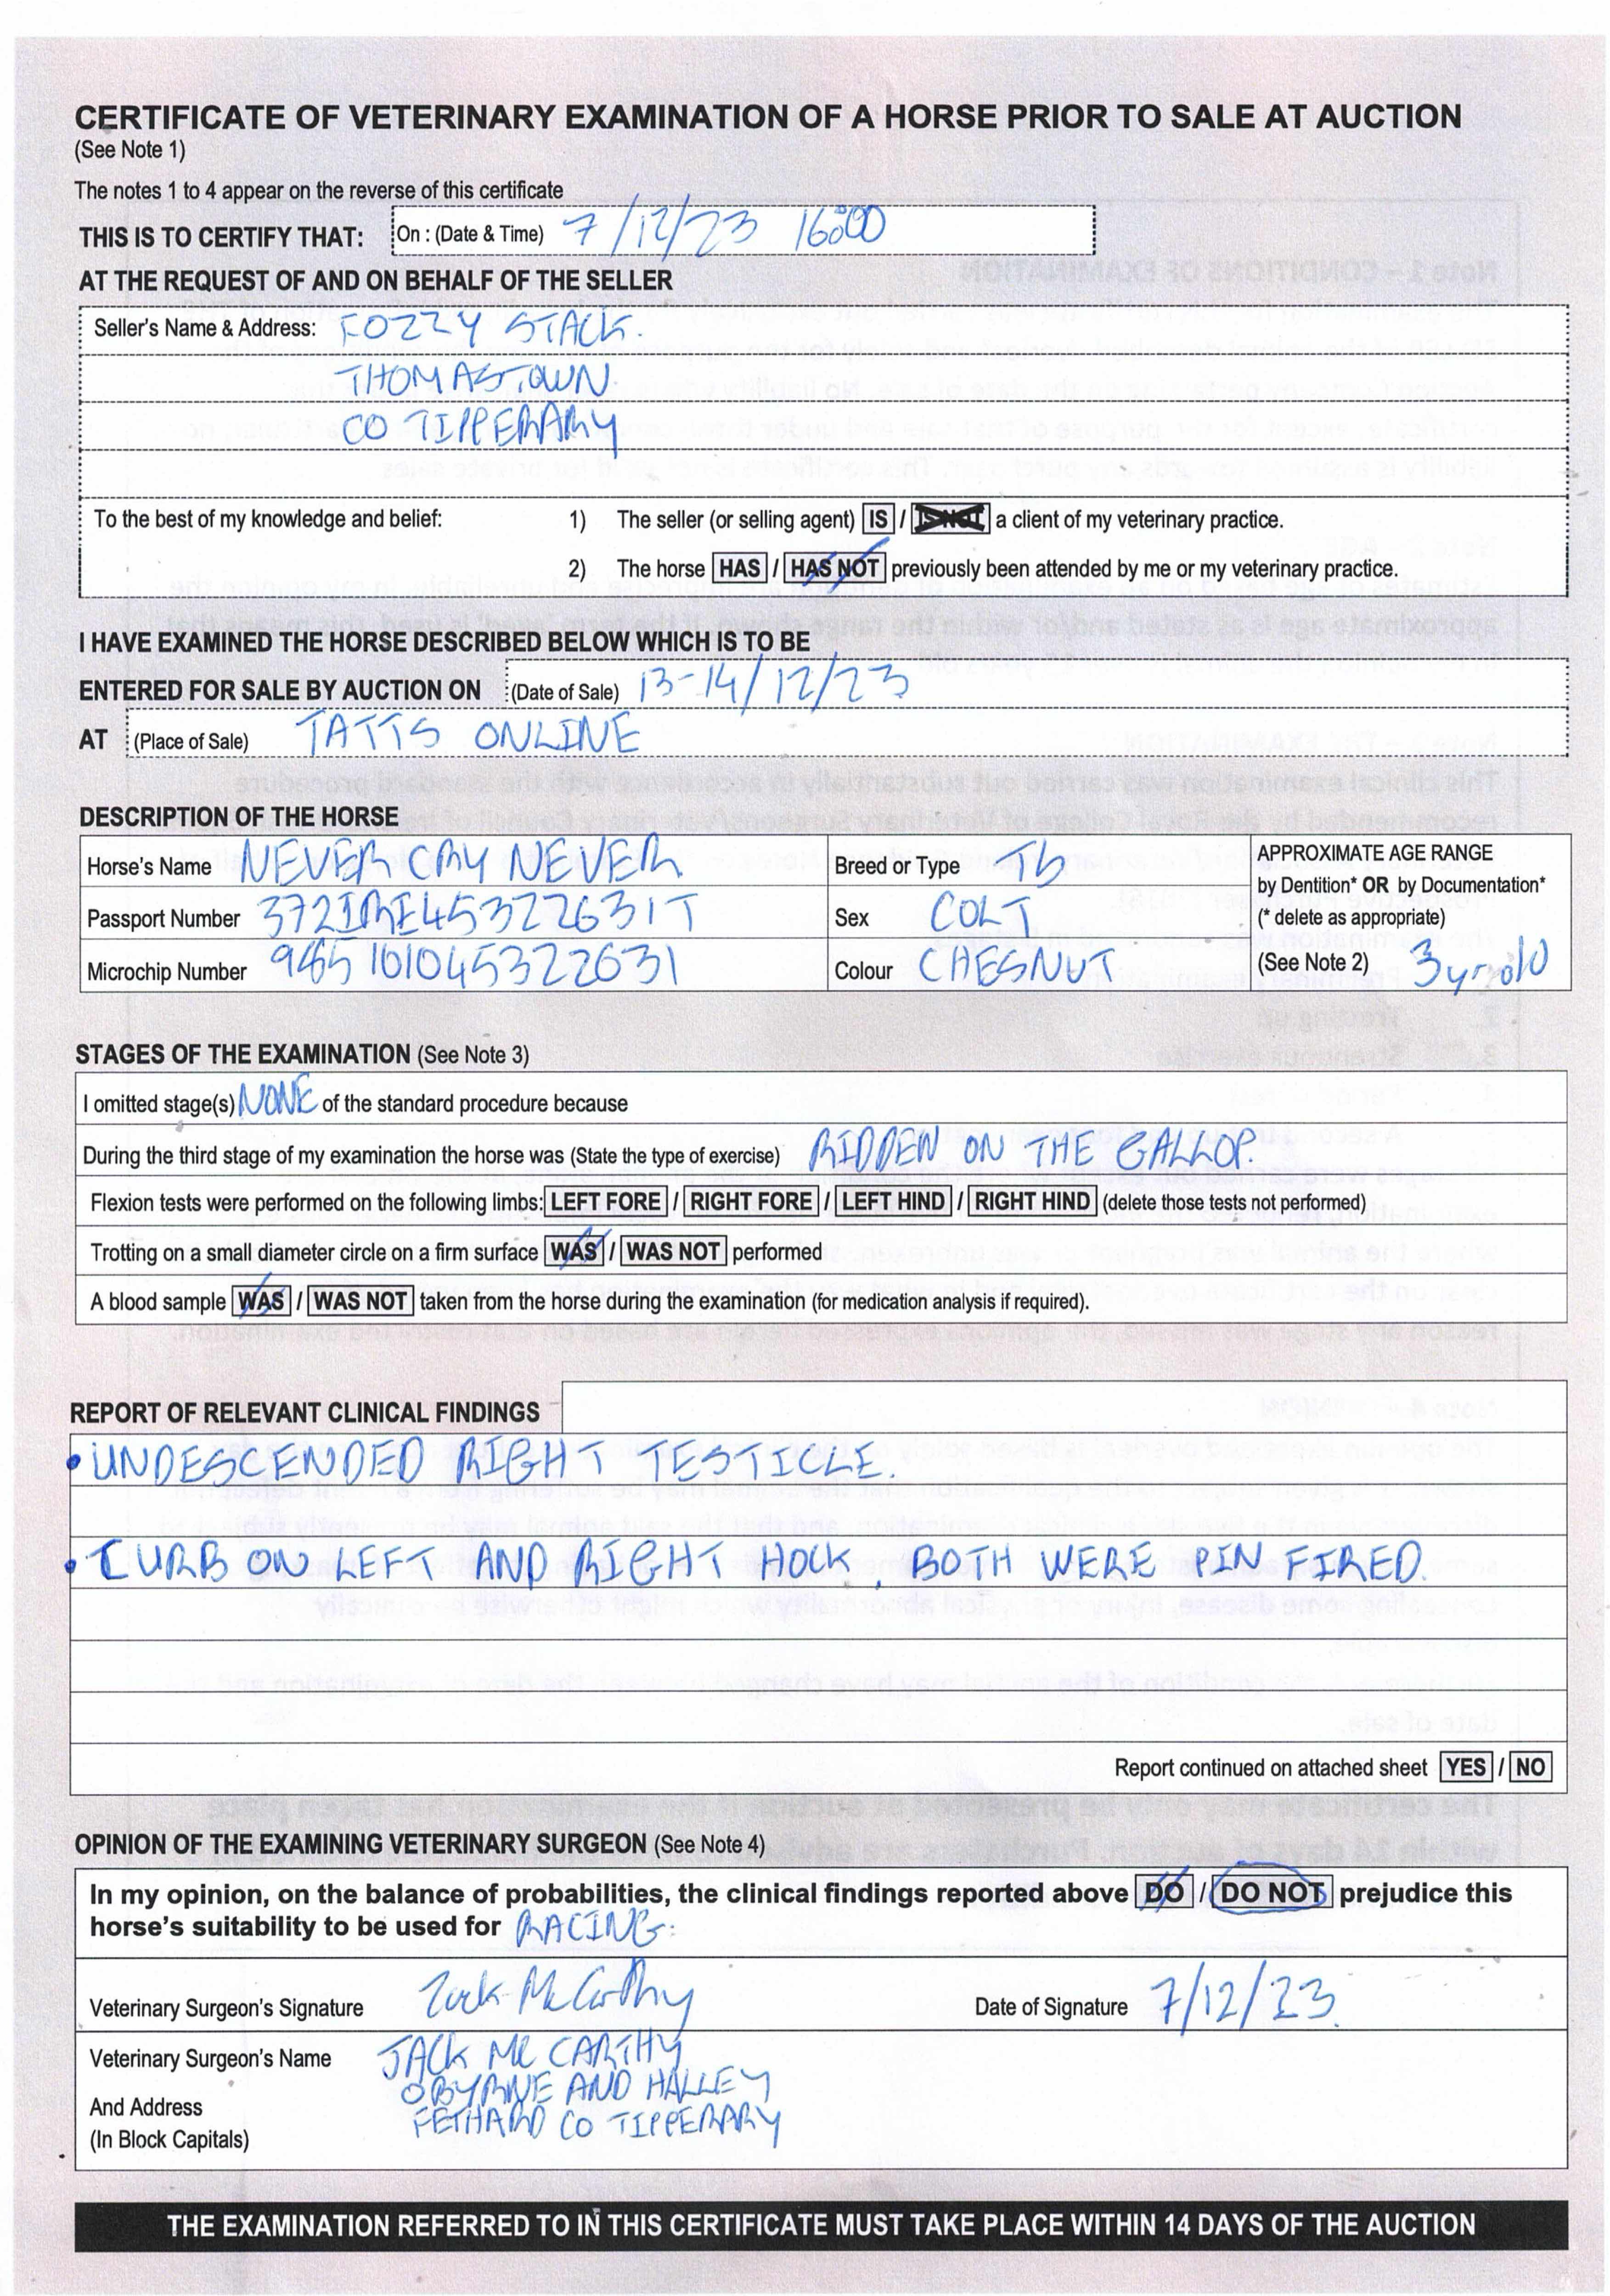 CERTIFICATE OF VETERINARY EXAMINATION OF A HORSE PRIOR TO SALE AT AUCTION
(See Note 1)
The notes 1 to 4 appear on the reverse of this certificate
THIS IS TO CERTIFY THAT: On : (Date & Time) 7/12/23 16:00
AT THE REQUEST OF AND ON BEHALF OF THE SELLER
Seller's Name & Address: FOZZY STACK.
THOMASTOWN
CO TIPPERARY
To the best of my knowledge and belief: 1) The seller (or selling agent) IS / IS NOT a client of my veterinary practice.
2) The horse HAS / HAS NOT previously been attended by me or my veterinary practice.
I HAVE EXAMINED THE HORSE DESCRIBED BELOW WHICH IS TO BE
ENTERED FOR SALE BY AUCTION ON (Date of Sale) 13-14/12/23
AT (Place of Sale) TATTS ONLINE
DESCRIPTION OF THE HORSE
Horse's Name NEVER CRY NEVER Breed or Type Tb APPROXIMATE AGE RANGE
by Dentition* OR by Documentation*
Passport Number 372IRE45322631T Sex COLT (* delete as appropriate)
Microchip Number 985101045322631 Colour CHESNUT (See Note 2) 3 yr old
STAGES OF THE EXAMINATION (See Note 3)
I omitted stage(s) NONE of the standard procedure because
During the third stage of my examination the horse was (State the type of exercise) RIDDEN ON THE GALLOP.
Flexion tests were performed on the following limbs: LEFT FORE / RIGHT FORE / LEFT HIND / RIGHT HIND (delete those tests not performed)
Trotting on a small diameter circle on a firm surface WAS / WAS NOT performed
A blood sample WAS / WAS NOT taken from the horse during the examination (for medication analysis if required).
REPORT OF RELEVANT CLINICAL FINDINGS
• UNDESCENDED RIGHT TESTICLE.
• CURB ON LEFT AND RIGHT HOCK, BOTH WERE PIN FIRED.
Report continued on attached sheet YES / NO
OPINION OF THE EXAMINING VETERINARY SURGEON (See Note 4)
In my opinion, on the balance of probabilities, the clinical findings reported above DO / DO NOT prejudice this
horse's suitability to be used for RACING.
Veterinary Surgeon's Signature Jack McCarthy Date of Signature 7/12/23.
Veterinary Surgeon's Name JACK MC CARTHY
OBYRNE AND HALLEY
And Address FETHARD CO TIPPERARY
(In Block Capitals)
THE EXAMINATION REFERRED TO IN THIS CERTIFICATE MUST TAKE PLACE WITHIN 14 DAYS OF THE AUCTION